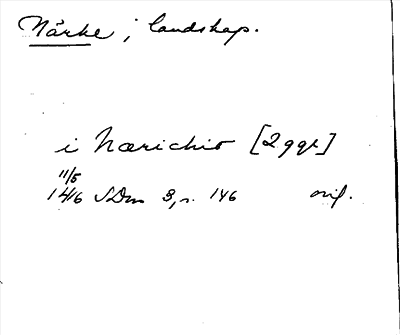 Närke; landskap.
i Nærichio [2 ggr]
11/5
1416 SDns 3, s. 146 orig.